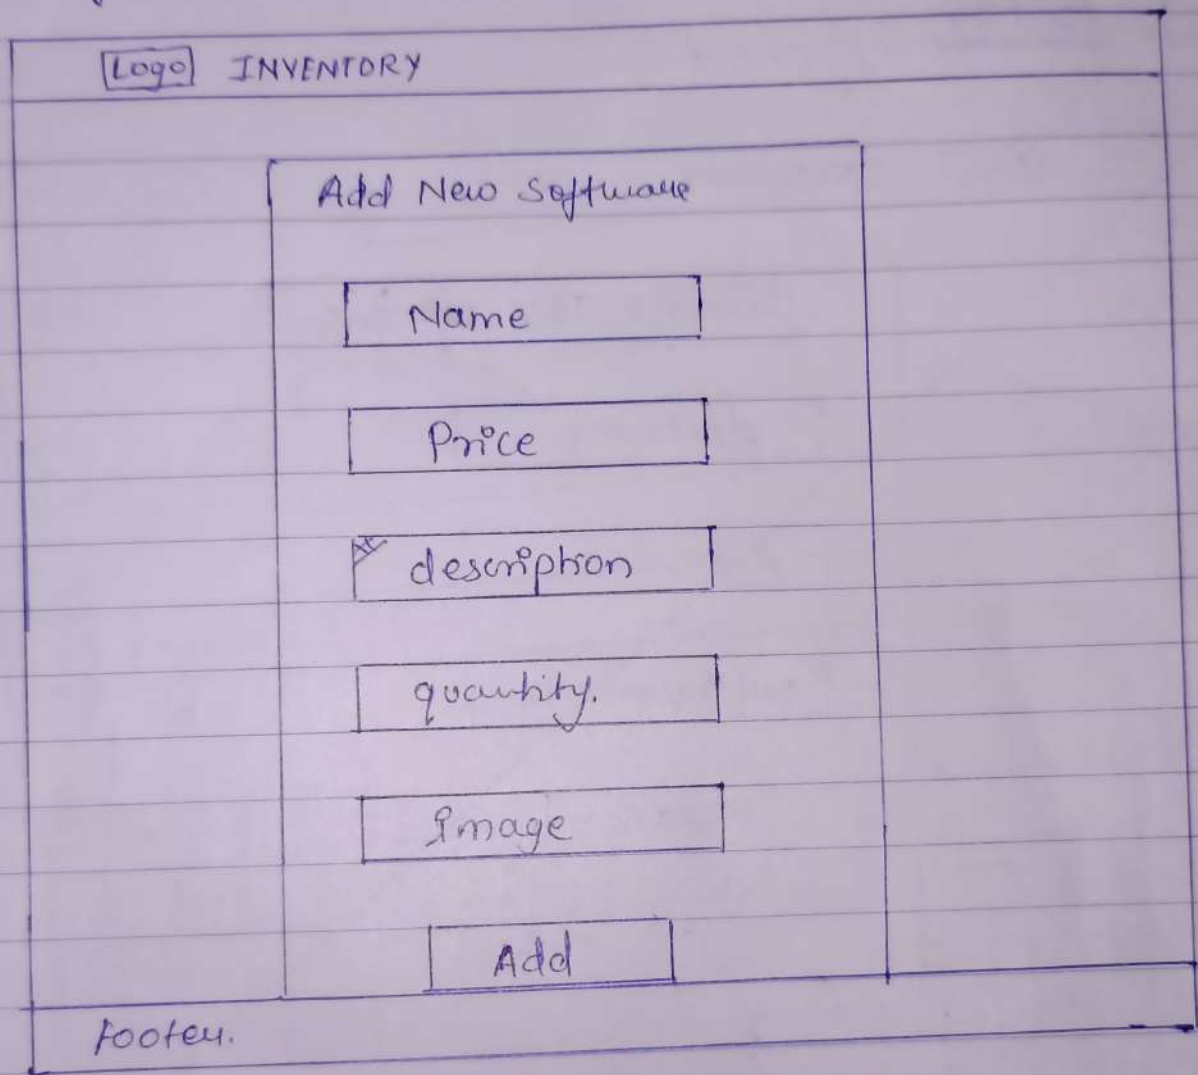 Logo INVENTORY
Add New Software
Name
Price
description
quantity.
Image
Add
Footer.